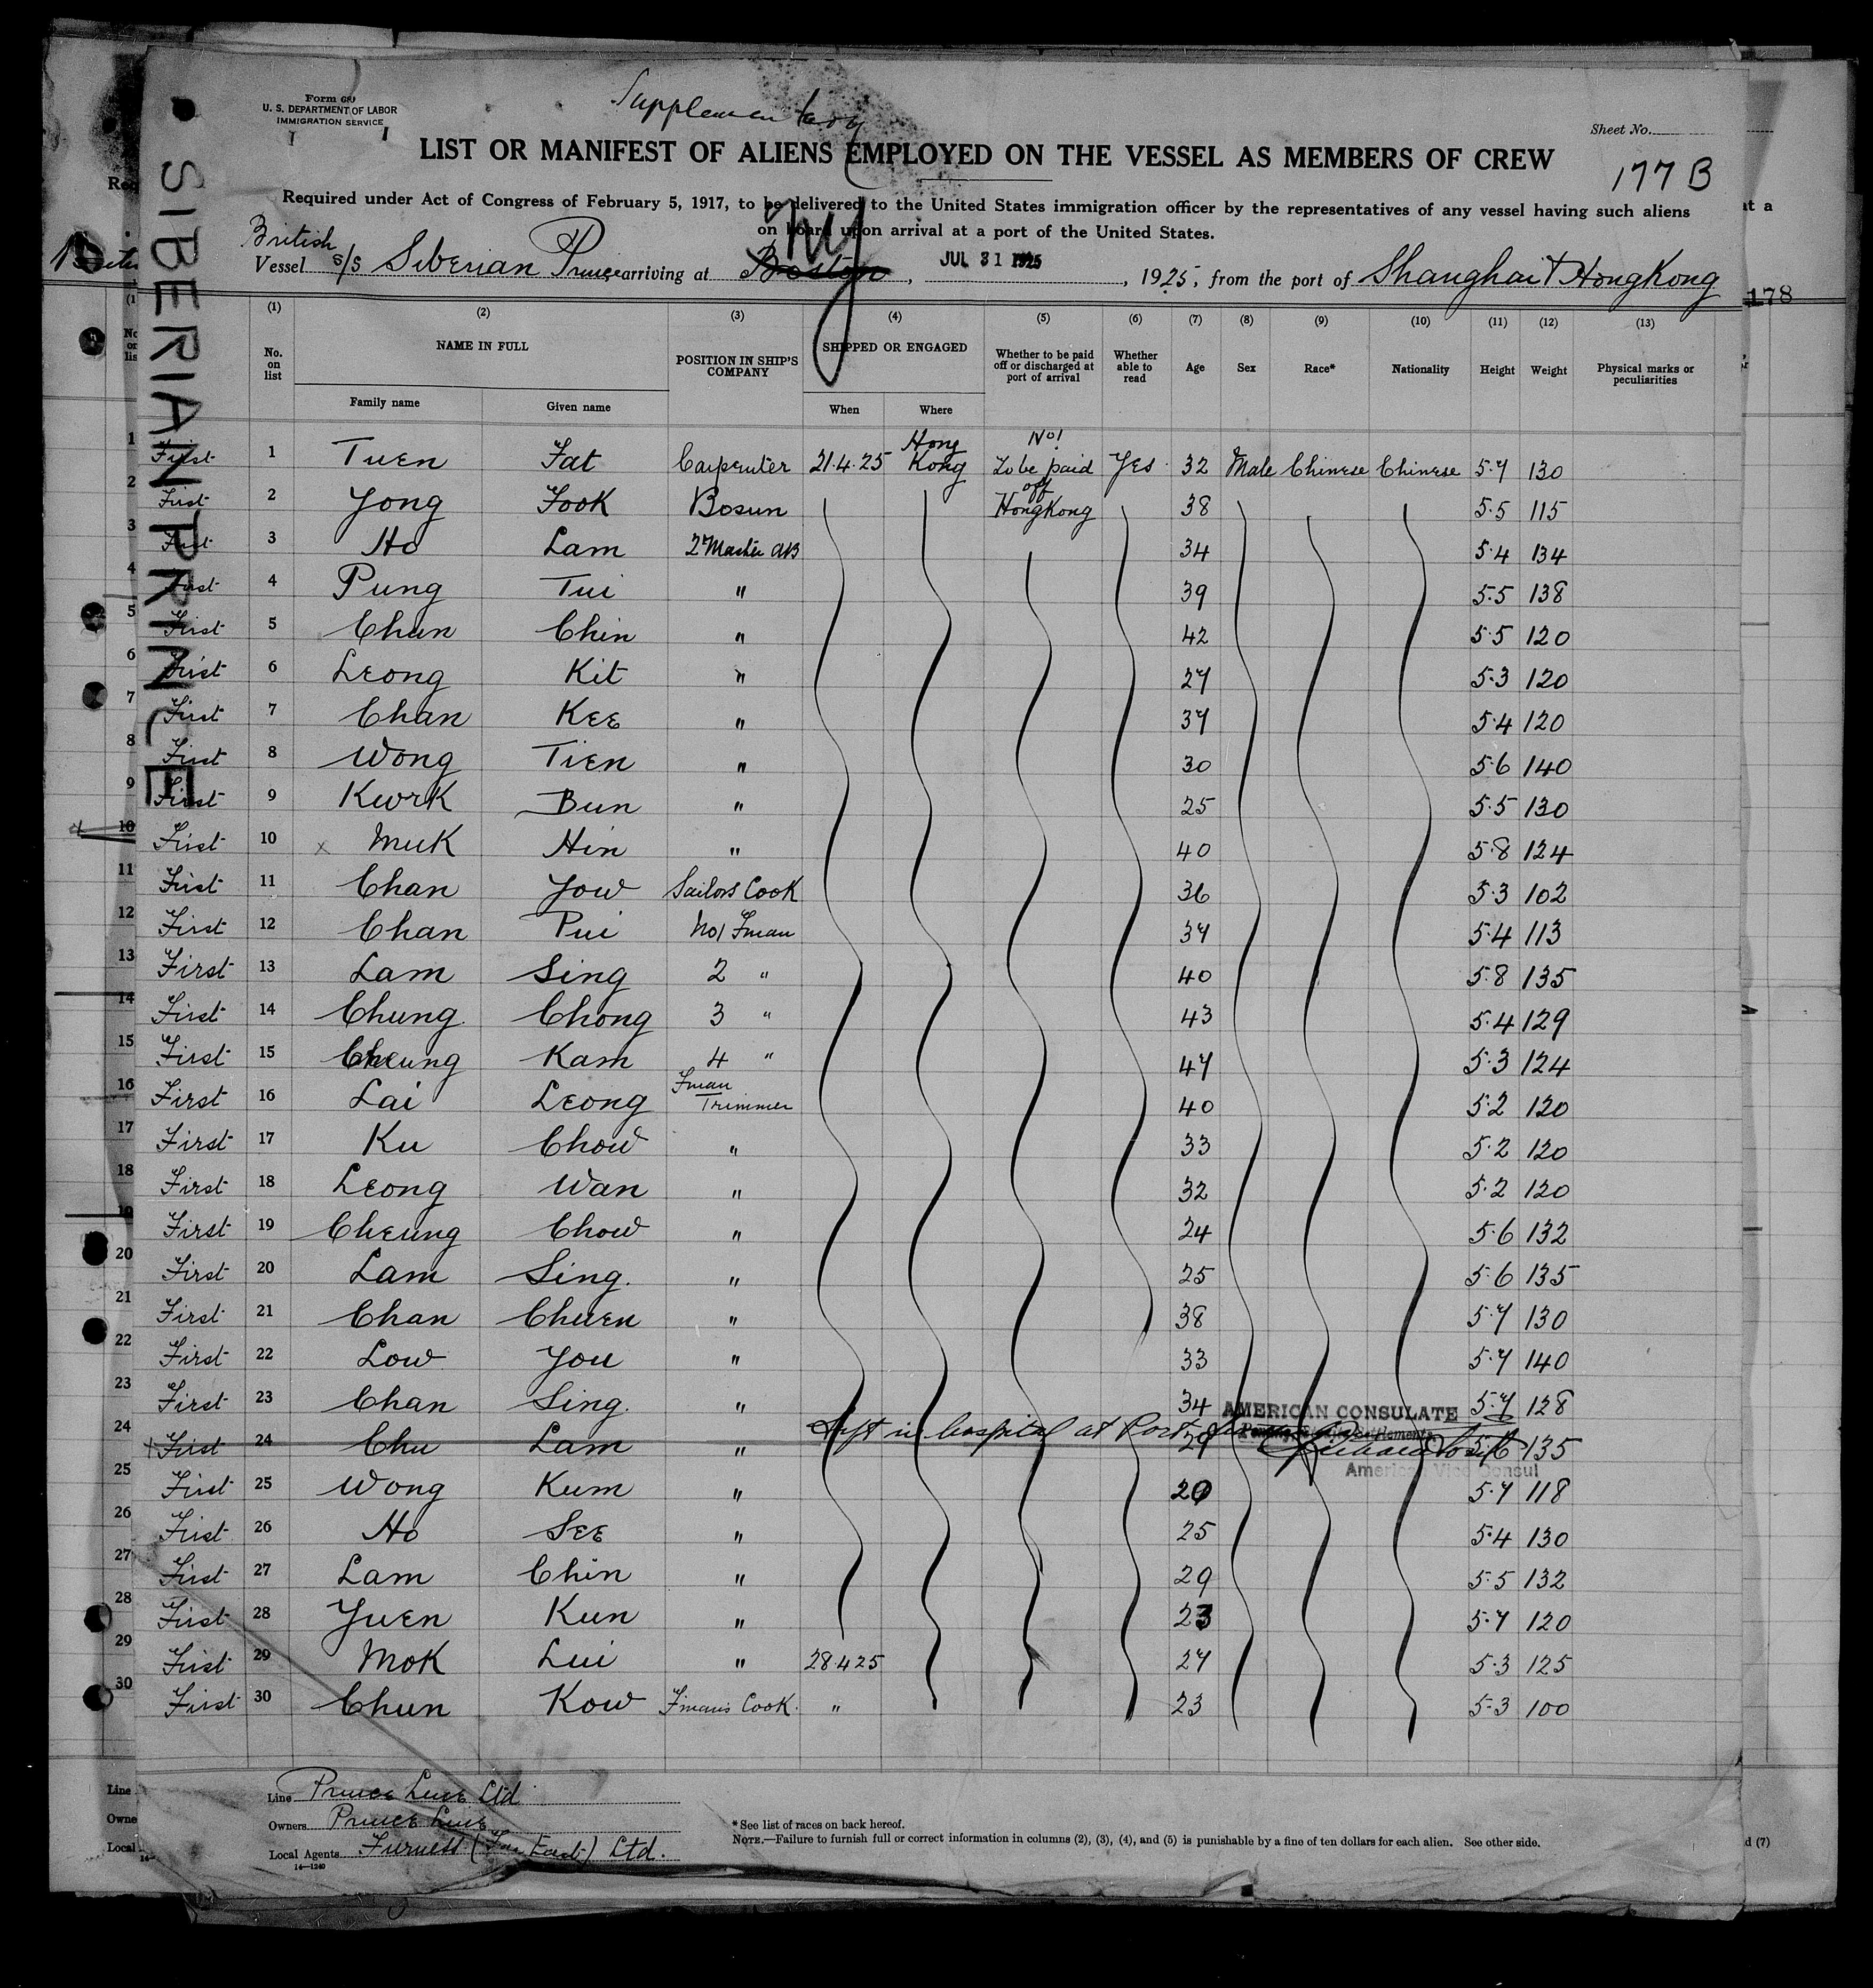 Form 689
U. S. DEPARTMENT OF LABOR
IMMIGRATION SERVICE
Supplementary
Sheet No.
LIST OR MANIFEST OF ALIENS EMPLOYED ON THE VESSEL AS MEMBERS OF CREW
177 B
Required under Act of Congress of February 5, 1917, to be delivered to the United States immigration officer by the representatives of any vessel having such aliens
on board upon arrival at a port of the United States.
SIBERIAN PRINCE
British
Vessel s/s Siberian Prince, arriving at Boston NY, JUL 31 1925, 1925, from the port of Shanghai & Hong Kong
178
(1) (2) (3) (4) (5) (6) (7) (8) (9) (10) (11) (12) (13)
No. on list NAME IN FULL POSITION IN SHIP'S COMPANY SHIPPED OR ENGAGED Whether to be paid off or discharged at port of arrival Whether able to read Age Sex Race* Nationality Height Weight Physical marks or peculiarities
Family name Given name When Where
First 1 Tuen Fat Carpenter 21.4.25 Hong Kong No! To be paid off Hong Kong Yes 32 Male Chinese Chinese 5.7 130
First 2 Yong Fook Bosun 38 5.5 115
First 3 Ho Lam 2 Master AB 34 5.4 134
First 4 Pung Tui " 39 5.5 138
First 5 Chun Chin " 42 5.5 120
First 6 Leong Kit " 27 5.3 120
First 7 Chan Kee " 37 5.4 120
First 8 Wong Tien " 30 5.6 140
First 9 Kwrk Bun " 25 5.5 130
First 10 x Muk Hin " 40 5.8 124
First 11 Chan Yow Sailors Cook 36 5.3 102
First 12 Chan Pui No 1 Fman 37 5.4 113
First 13 Lam Sing 2 " 40 5.8 135
First 14 Chung Chong 3 " 43 5.4 129
First 15 Cheung Kam 4 " 47 5.3 124
First 16 Lai Leong Fman Trimmer 40 5.2 120
First 17 Ku Chow " 33 5.2 120
First 18 Leong Wan " 32 5.2 120
First 19 Cheung Chow " 24 5.6 132
First 20 Lam Sing. " 25 5.6 135
First 21 Chan Chuen " 38 5.7 130
First 22 Low You " 33 5.7 140
First 23 Chan Sing. " 34 5.7 128
AMERICAN CONSULATE
x First 24 Chu Lam " Left in hospital at Port 29 5.6 135
American Vice Consul
First 25 Wong Kum " 20 5.7 118
First 26 Ho See " 25 5.4 130
First 27 Lam Chin " 29 5.5 132
First 28 Yuen Kun " 23 5.7 120
First 29 Mok Lui " 28.4.25 27 5.3 125
First 30 Chun Kow Fmans Cook. " 23 5.3 100
Line Prince Line Ltd
Owners Prince Line
Local Agents Furness (Far East) Ltd.
14—1240
*See list of races on back hereof.
NOTE.—Failure to furnish full or correct information in columns (2), (3), (4), and (5) is punishable by a fine of ten dollars for each alien. See other side.